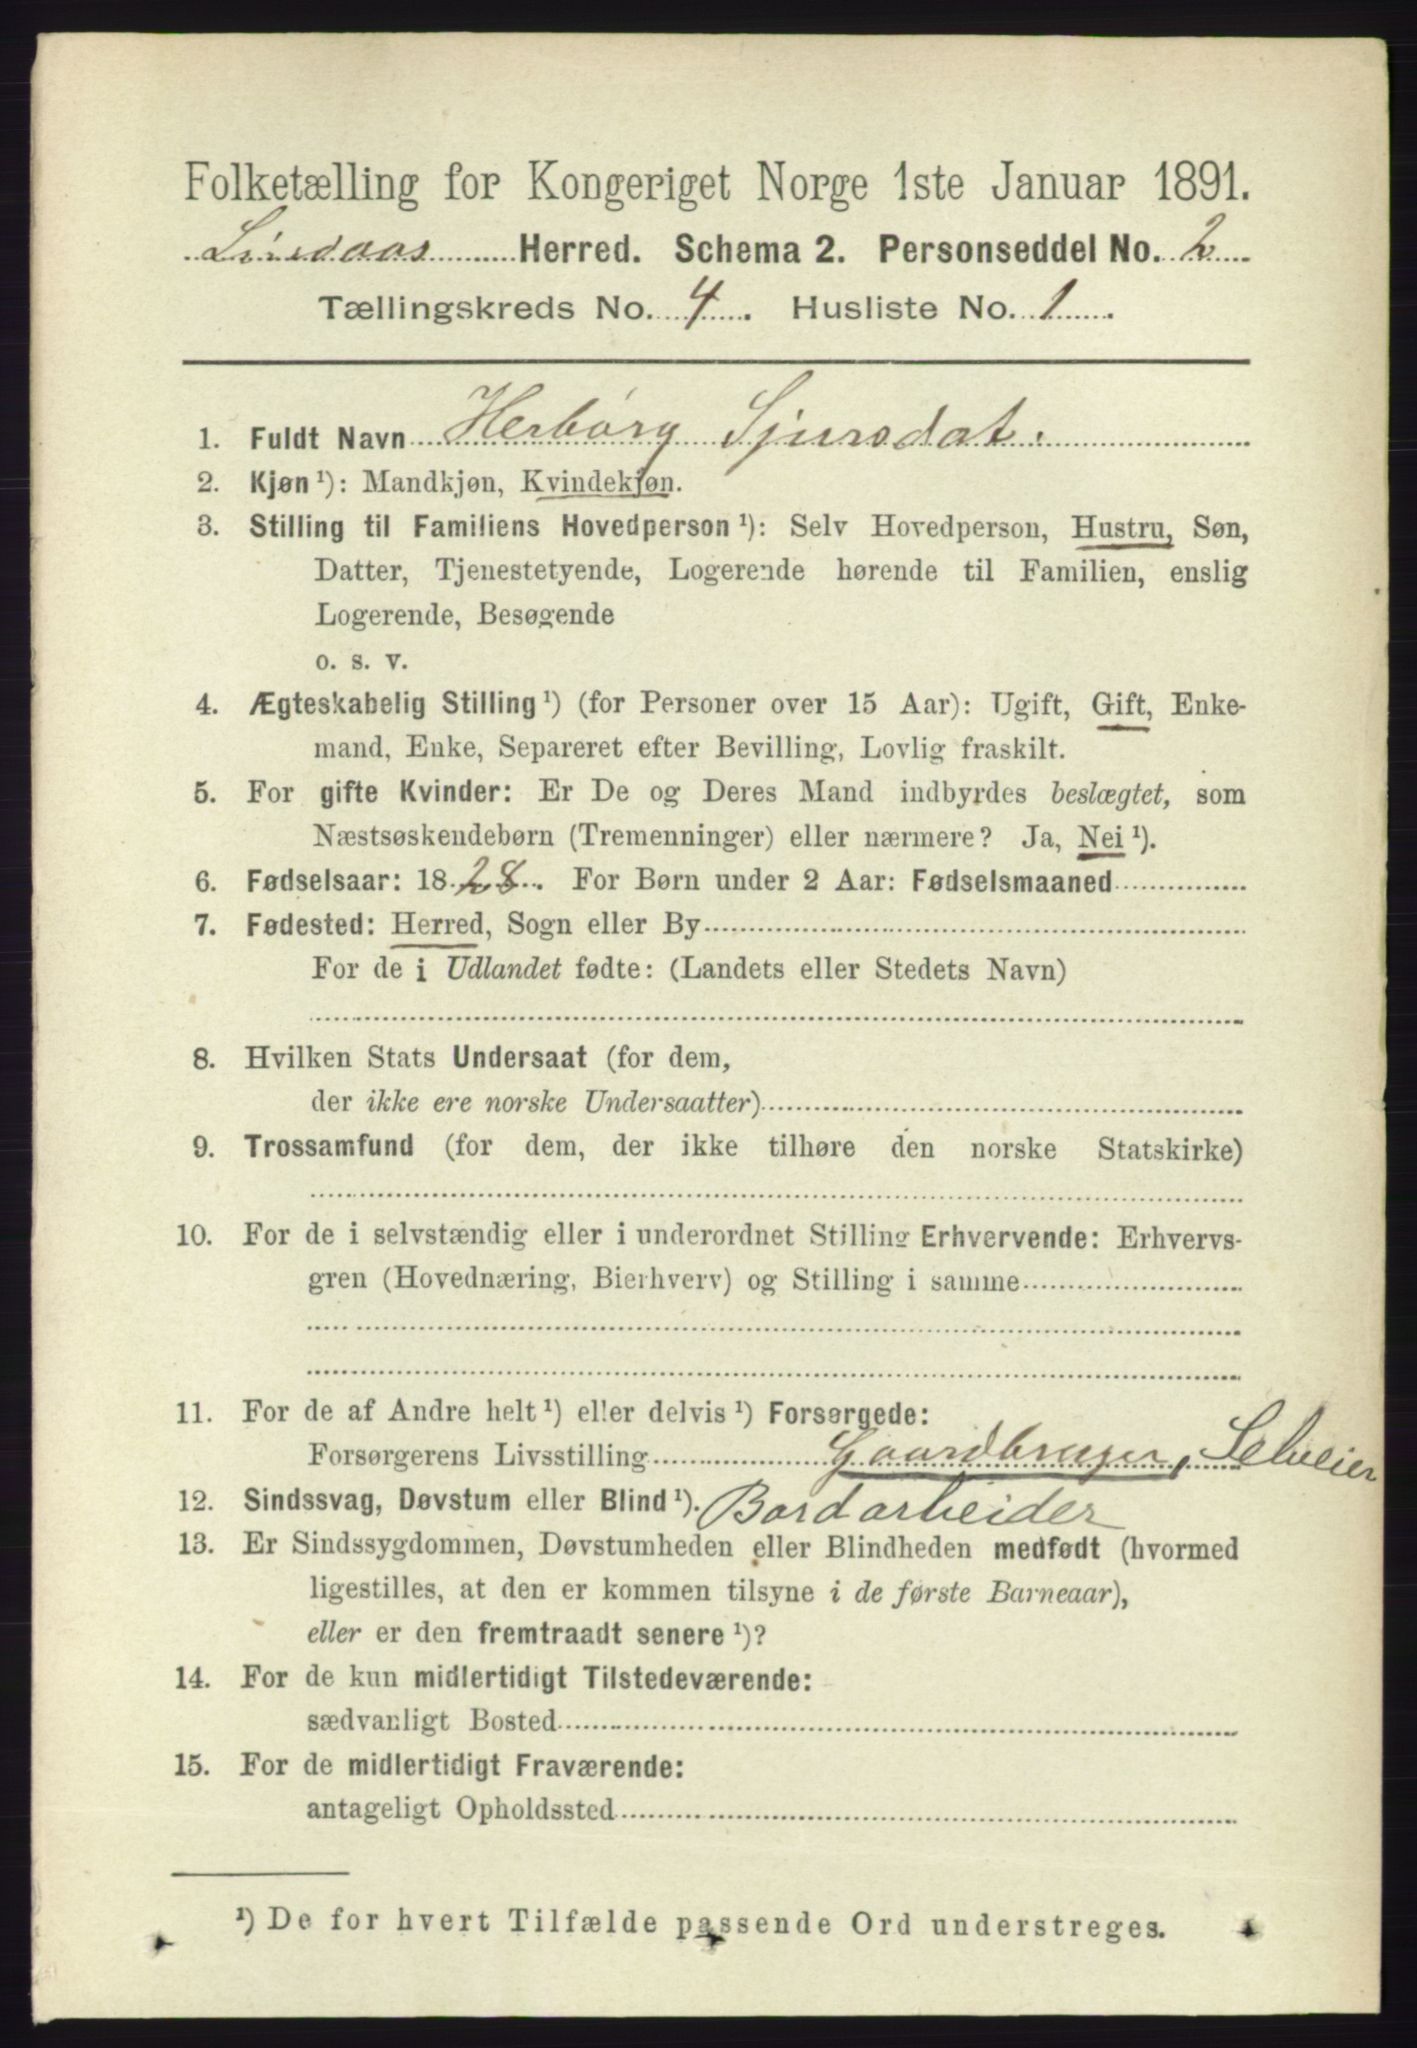 Folketælling for Kongeriget Norge 1ste Januar 1891.
Lindaas Herred. Schema 2. Personseddel No. 2
Tællingskreds No. 4. Husliste No. 1.
1. Fuldt Navn Herbørg Sjursdat.
2. Kjøn ¹): Mandkjøn, Kvindekjøn.
3. Stilling til Familiens Hovedperson ¹): Selv Hovedperson, Hustru, Søn,
Datter, Tjenestetyende, Logerende hørende til Familien, enslig
Logerende, Besøgende
o. s. v.
4. Ægteskabelig Stilling ¹) (for Personer over 15 Aar): Ugift, Gift, Enke-
mand, Enke, Separeret efter Bevilling, Lovlig fraskilt.
5. For gifte Kvinder: Er De og Deres Mand indbyrdes beslægtet, som
Næstsøskendebørn (Tremenninger) eller nærmere? Ja, Nei ¹).
6. Fødselsaar: 1828. For Børn under 2 Aar: Fødselsmaaned
7. Fødested: Herred, Sogn eller By
For de i Udlandet fødte: (Landets eller Stedets Navn)
8. Hvilken Stats Undersaat (for dem,
der ikke ere norske Undersaatter)
9. Trossamfund (for dem, der ikke tilhøre den norske Statskirke)
10. For de i selvstændig eller i underordnet Stilling Erhvervende: Erhvervs-
gren (Hovednæring, Bierhverv) og Stilling i samme
11. For de af Andre helt ¹) eller delvis ¹) Forsørgede:
Forsørgerens Livsstilling Gaardbruger, Selveier
12. Sindssvag, Døvstum eller Blind ¹). Bordarbeider
13. Er Sindssygdommen, Døvstumheden eller Blindheden medfødt (hvormed
ligestilles, at den er kommen tilsyne i de første Barneaar),
eller er den fremtraadt senere ¹)?
14. For de kun midlertidigt Tilstedeværende:
sædvanligt Bosted
15. For de midlertidigt Fraværende:
antageligt Opholdssted
¹) De for hvert Tilfælde passende Ord understreges.